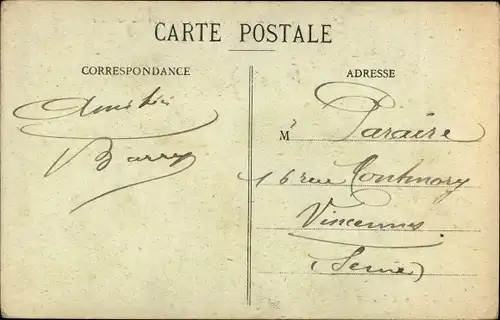 CARTE POSTALE
CORRESPONDANCE
ADRESSE
Amitiés
Barry
Mr Paraire
16 rue Montmory
Vincennes
(Seine)